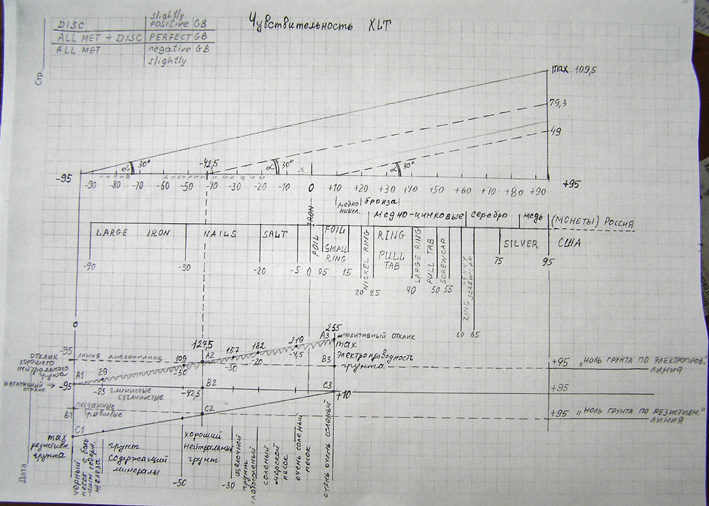 Чувствительность XLT
DISC slightly positive GB
ALL MET + DISC PERFECT GB
ALL MET negative GB slightly
Стр.
max 109,5
79,3
49
α 30° -42,5 α 30° α 30°
-95 -90 -80 -70 -60 -50 -40 -30 -20 -10 0 +10 +20 +30 +40 +50 +60 +70 +80 +90 +95
бронза
медно-цинковые серебро медь (монеты) Россия
LARGE IRON NAILS SALT IRON FOIL FOIL SMALL RING NICKEL RING RING PULL TAB LARGE RING PULL TAB SCREWCAP SILVER США
-90 -50 -20 -5 0 05 15 20 25 40 50 55 60 65 75 95
0 127,5 255
отклик хорошего нейтрального грунта
-95 линия дискримин. 109 A2 157 182 219 A3 позитивный отклик
max
Электропроводность грунта
A1 29 -50 -30 -20 -4,5 B3
+95 "Ноль грунта по электропров." линия
негативный отклик -95 -25 глинистые -42,5 B2 C3 +10 +95
B1 песчаные C2 +95 "Ноль грунта по резистивн." линия
C1
max резистивн. грунта
Дата
черный песок с больш. содерж. железа
грунт содержащий минералы
хороший нейтральный грунт
щелочной грунт слабосоленый
соленый морской песок
очень соленый песок
очень очень соленый
-50 -30